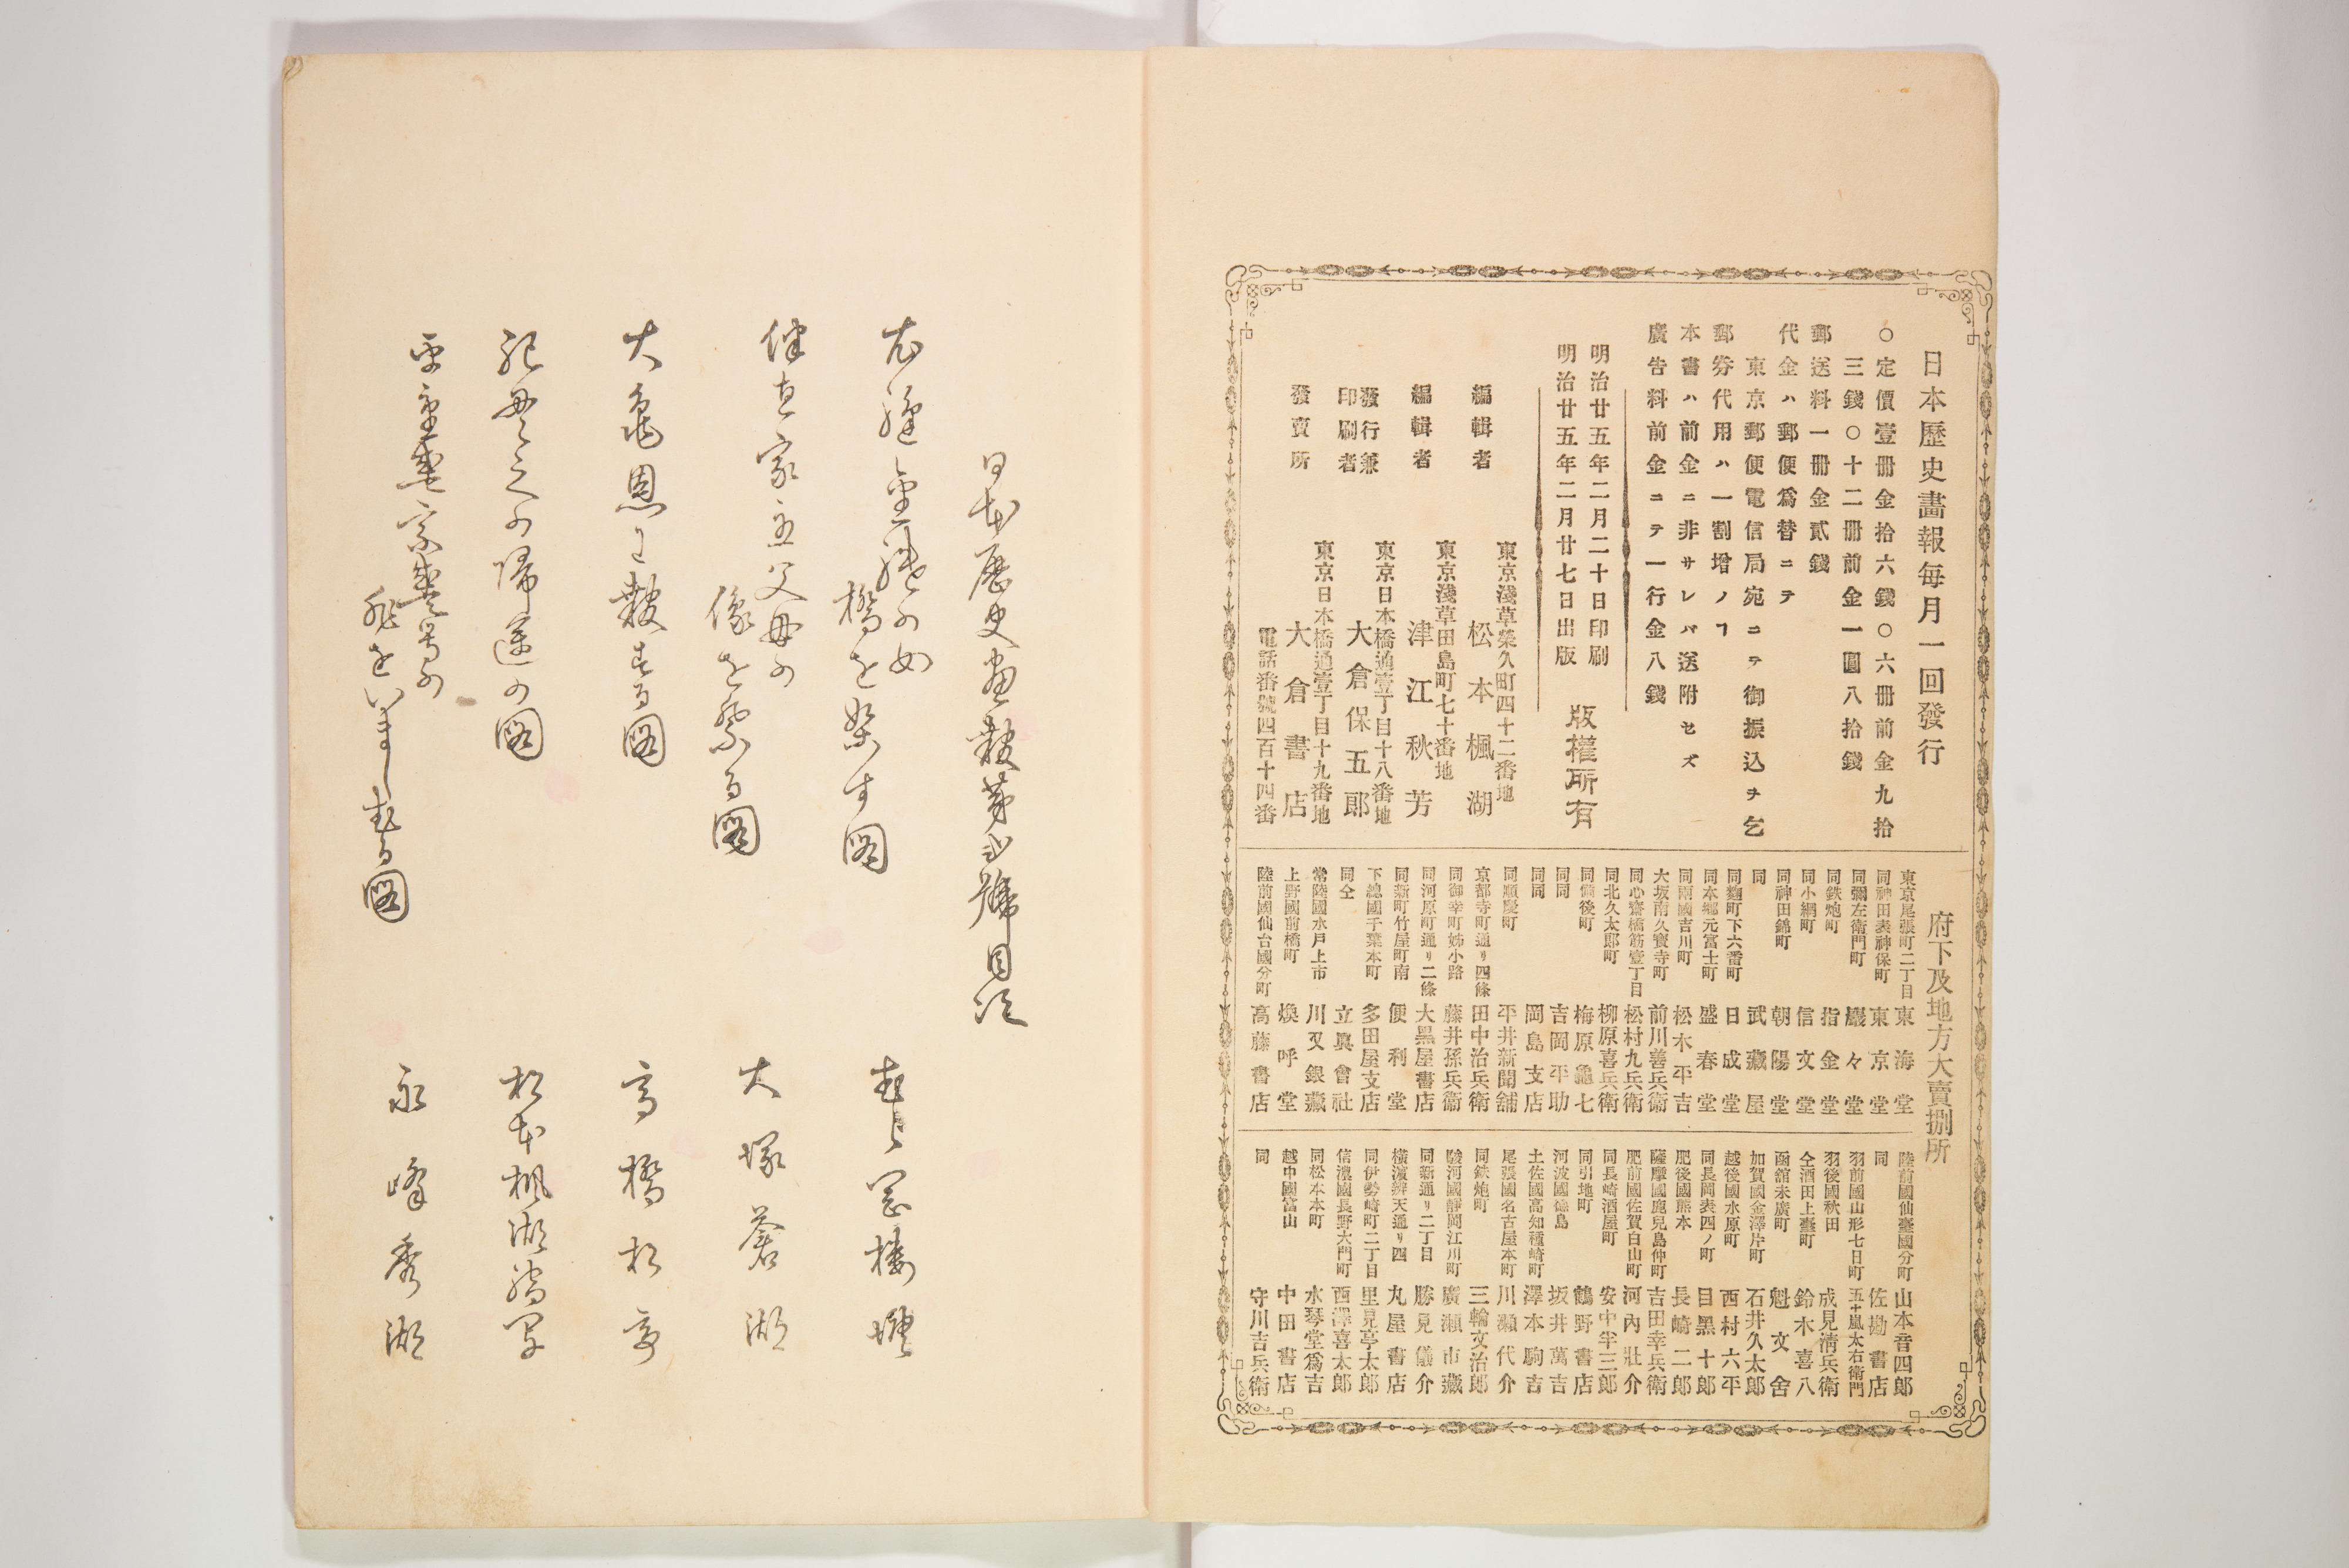 日本歷史畫報毎月一回發行
○定價壹冊金拾六錢○六冊前金九拾
三錢○十二冊前金一圓八拾錢
郵送料一冊金貳錢
代金ハ郵便爲替ニテ
東京郵便電信局宛ニテ御振込ヲ乞
郵券代用ハ一割增ノヿ
本書ハ前金ニ非サレバ送附セズ
廣告料前金ニテ一行金八錢
明治廿五年二月二十日印刷
明治廿五年二月廿七日出版
版權所有
編輯者
東京淺草榮久町四十二番地
松本楓湖
編輯者
東京淺草田島町七十番地
津江秋芳
發行兼
印刷者
東京日本橋通壹丁目十八番地
大倉保五郎
發賣所
東京日本橋通壹丁目十九番地
大倉書店
電話番號四百十四番
府下及地方大賣捌所
東京尾張町二丁目 東海堂
同神田表神保町 東京堂
同彌左衞門町 巖々堂
同鉄炮町 指金堂
同小網町 信文堂
同神田錦町 朝陽堂
同 武藏屋
同麴町下六番町 日成堂
同本鄕元富士町 盛春堂
同兩國吉川町 松木平吉
大坂南久寶寺町 前川善兵衞
同心齋橋筋壹丁目 松村九兵衞
同北久太郎町 柳原喜兵衞
同備後町 梅原龜七
同同 吉岡平助
同同 岡島支店
同順慶町 平井新聞舖
京都寺町通リ四條 田中治兵衞
同御幸町姊小路 藤井孫兵衞
同河原町通リ二條 大黑屋書店
同新町竹屋町南 便利堂
下總國千葉本町 多田屋支店
同仝 立眞會社
常陸國水戶上市 川又銀藏
上野國前橋町 煥呼堂
陸前國仙台國分町 高藤書店
陸前國仙臺國分町 山本音四郎
同 佐勘書店
羽前國山形七日町 五十嵐太右衞門
羽後國秋田 成見淸兵衞
仝酒田上臺町 鈴木喜八
函館末廣町 魁文舍
加賀國金澤片町 石井久太郎
越後國水原町 西村六平
同長岡表四ノ町 目黑十郎
肥後國熊本 長崎二郎
薩摩國鹿兒島仲町 吉田幸兵衞
肥前國佐賀白山町 河內壯介
同長崎酒屋町 安中半三郎
同引地町 鶴野書店
河波國德島 坂井萬吉
土佐國高知種崎町 澤本駒吉
尾張國名古屋本町 川瀨代介
同鉄炮町 三輪文治郎
駿河國靜岡江川町 廣瀨市藏
同新通リ二丁目 勝見儀介
橫濱辨天通リ四 丸屋書店
同伊勢崎町二丁目 里見亭太郎
信濃國長野大門町 西澤喜太郎
同松本本町 水琴堂爲吉
越中國富山 中田書店
同 守川吉兵衞
日本歷史畫報第弐號目次
橋を架す圖
伴直家主父母の
像を祭る圖
大塚蒼湖
大龜恩に報する圖
高橋松亭
帰途の圖
松本楓湖
永峰秀湖